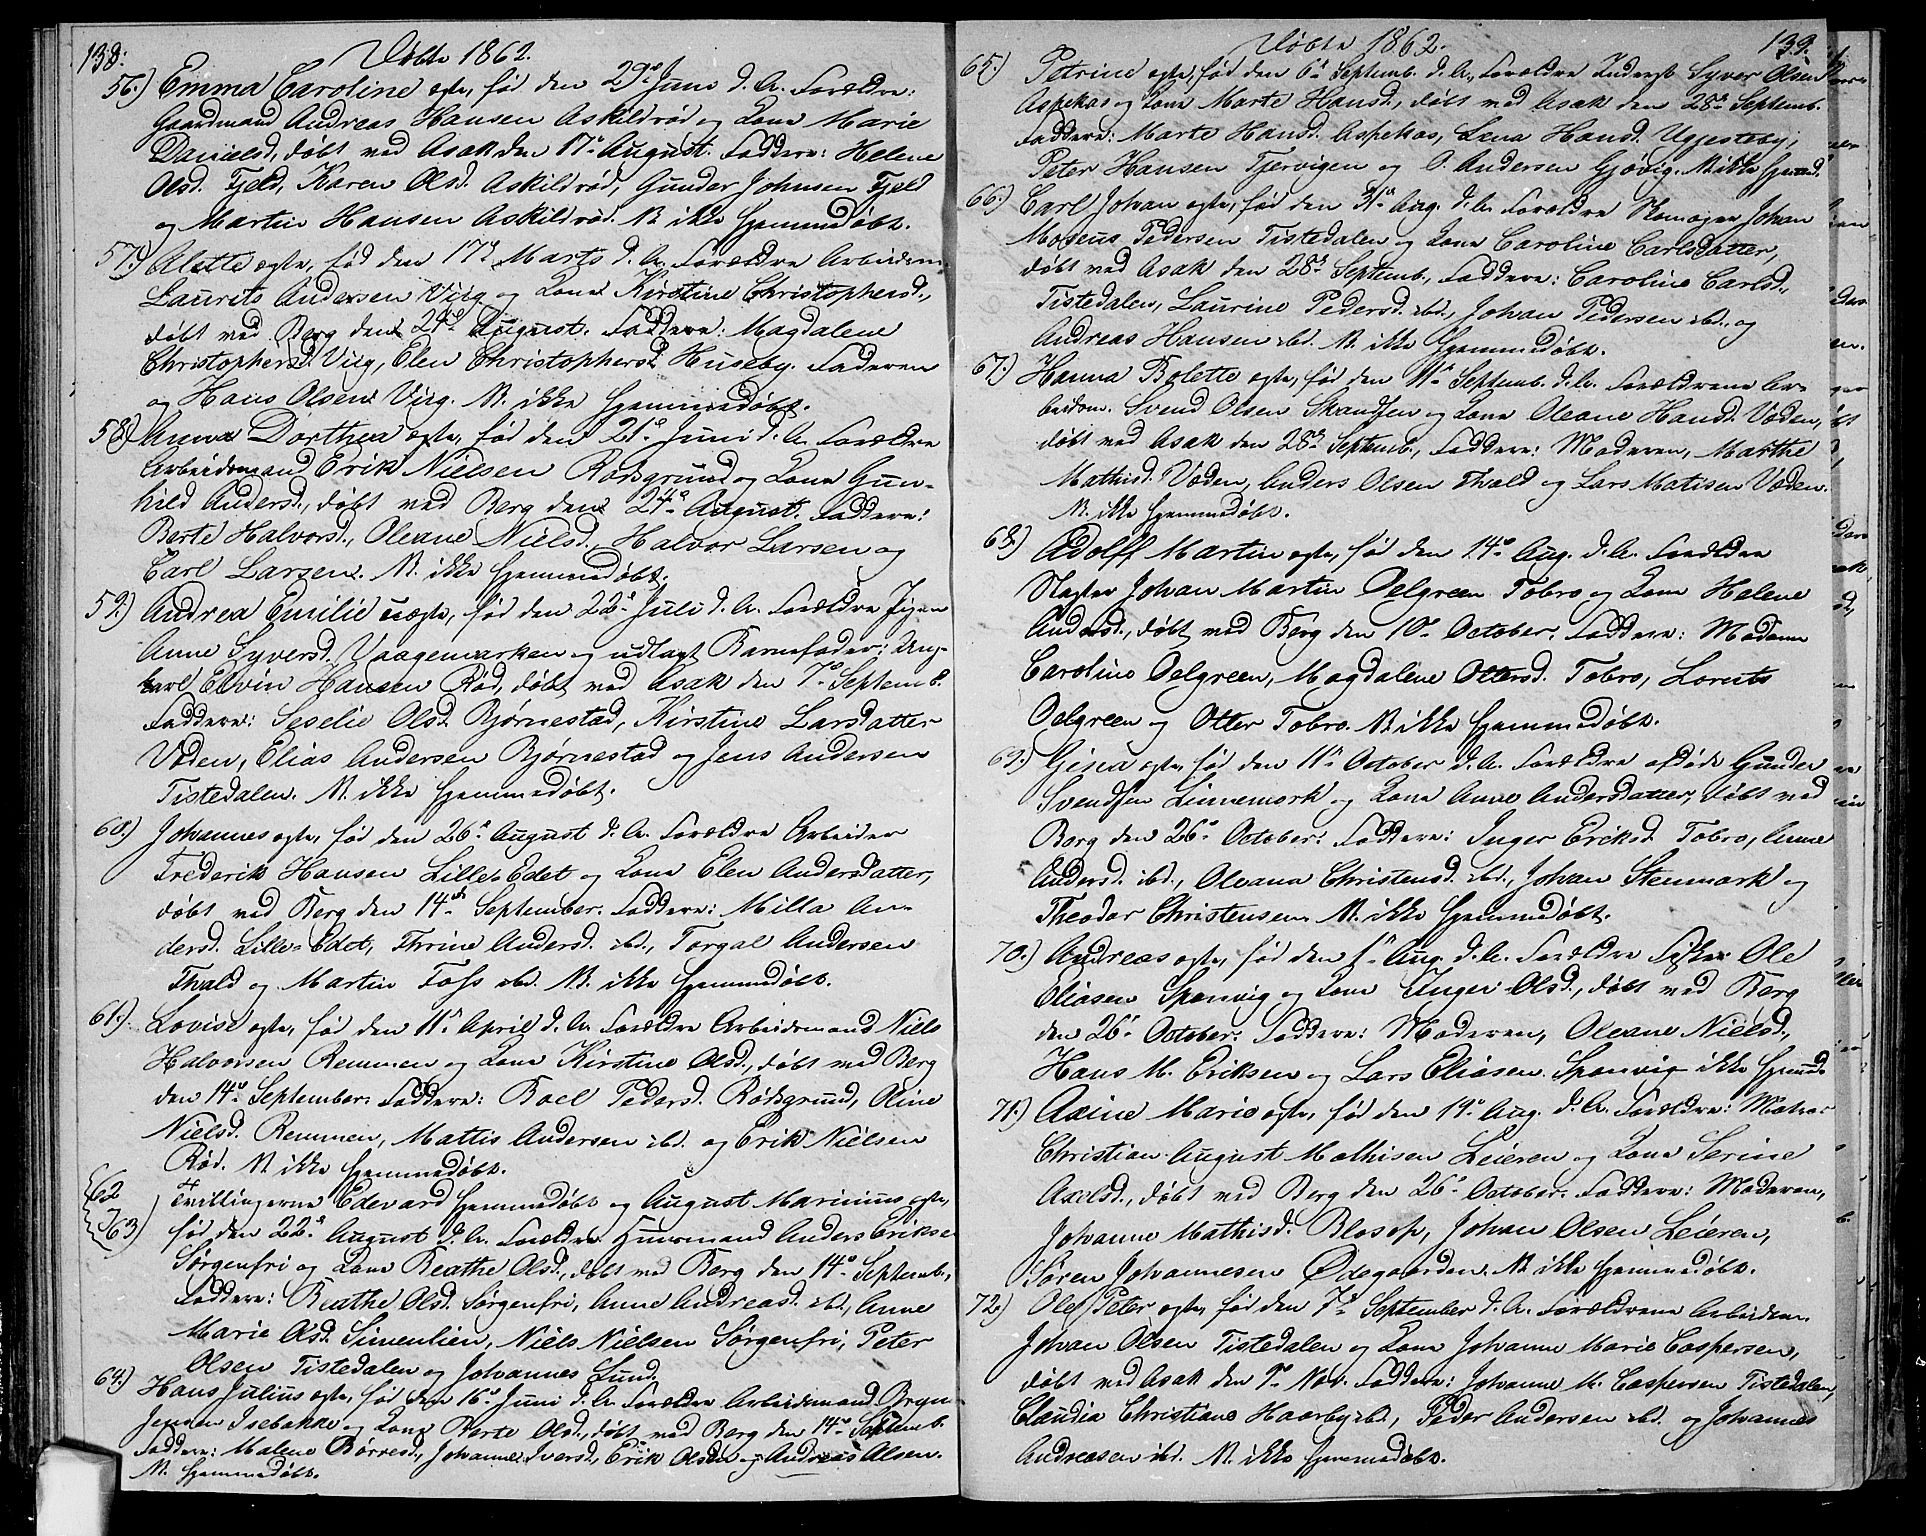 138.
Døbte 1862.
56.) Emma Caroline ægte, fød den 29de Juni d. A. Forældre:
Gaardmand Andreas Hansen Askildrød og Kone Marie
Danielsd., døbt ved Asak den 17de August. Faddere: Helene
Olsd. Fjeld, Karen Olsd. Askildrød, Gunder Johnsen Fjeld
og Martin Hansen Askildrød. N. ikke hjemmedøbt.
57.) Alette ægte, fød den 17de Marts d. A. Forældre Arbeidsm.
Laurits Andersen Viig og Kone Kirstine Christophersd.,
døbt ved Berg den 24de August. Faddere: Magdalene
Christophersd. Viig, Elen Christophersd. Huseby. Faderen
og Hans Olsen Viig. N. ikke hjemmedøbt.
58.) Anna Dorthea ægte, fød den 21de Juni d. A. Forældre
Arbeidsmand Erik Nielsen Rødsgrund og Kone Gun-
hild Andersd., døbt ved Berg den 24de August. Faddere:
Berte Halvorsd., Oleane Nielsd., Halvor Larsen og
Carl Larsen. N. ikke hjemmedøbt.
59.) Andrea Emilie uægte, fød den 22de Juli d. A. Forældre Pigen
Anne Syversd. Vaagemarken og udlagt Barnefader: Ung-
karl Edvin Hansen Rød, døbt ved Asak den 7de Septemb.
Faddere: Seselie Olsd. Bjørnestad, Kirstine Larsdatter
Veden, Elias Andersen Bjørnestad og Jens Andersen
Tistedalen. N. ikke hjemmedøbt.
60.) Johannes ægte, fød den 26de August d. A. Forældre Arbeider
Frederik Hansen Lille-Edet og Kone Elen Andersdatter,
døbt ved Berg den 14de September. Faddere: Milla An-
dersd. Lille-Edet, Thrine Andersd. ibd., Torgal Andersen
Thvald og Martin Foss ibd. N. ikke hjemmedøbt.
61.) Lovise ægte, fød den 11de April d. A. Forældre Arbeidsmand Niels
Halvorsen Remmen og Kone Kirstine Olsd., døbt ved Berg
den 14de September. Faddere: Boel Pedersd. Rødsgrund, Oline
Nielsd. Remmen, Mattis Andersen ibd. og Erik Nielsen
Rød. N. ikke hjemmedøbt.
62 63) Tvillingerne Edevard hjemmedøbt og August Marinius ægte,
fød den 22de August d. A. Forældre Huusmand Anders Eriksen
Sørgenfri og Kone Beathe Olsd., døbt ved Berg den 14de Septemb.,
Faddere: Beathe Olsd. Sørgenfri, Anne Andreasd. ibd., Anne
Marie Olsd. Simenlien, Niels Nielsen Sørgenfri, Peter
Olsen Tistedalen og Johannes Lund.
64.) Hans Julius ægte, fød den 16de Juni d. A. Forældre Arbeidsmand Bryn
Jensen Isebakke og Kone Berte Olsd., døbt ved Berg den 14de Septemb.
Faddere: Malene Børresd., Johanne Iversd., Erik Olsen og Andreas Olsen.
N. hjemmedøbt.
Døbte 1862.
139.
65.) Petrine ægte, fød den 6de Septemb. d. A., Forældre Inderst Syver Olsen
Aspekas og Kone Marte Hansd., døbt ved Asak den 28de Septemb.
Faddere: Marte Hansd. Aspekas, Lena Hansd. Uggesteby,
Peter Hansen Tjervigen og O. Andersen Gjøvig. N. ikke hjemmd.
66.) Carl Johan ægte, fød den 31de Aug. d. A. Forældre Skomager Johan
Moseus Pedersen Tistedalen og Kone Caroline Carlsdatter,
døbt ved Asak den 28de Septemb., Faddere: Caroline Carlsd.,
Tistedalen, Laurine Pedersd. ibd., Johan Pedersen ibd., og
Andreas Hansen ibd. N. ikke hjemmedøbt.
67.) Hanna Bolette ægte, fød den 11de Septemb. d. A. Forældrene Ar-
beidsm. Svend Olsen Skandsen og Kone Oleane Hansd. Veden,
døbt ved Asak den 28de Septemb., Faddere: Moderen, Marthe
Mathisd. Veden, Anders Olsen Thvald og Lars Matisen Veden.
N. ikke hjemmedøbt.
68.) Adolff Martin ægte, fød den 14de Aug. d. A. Forældre
Slagter Johan Martin Oelgreen Tobro og Kone Helene
Andersd., døbt ved Berg den 10de October. Faddere: Madame
Caroline Oelgreen, Magdalene Ottersd. Tobro, Lorents
Oelgreen og Otter Tobro. N. ikke hjemmedøbt.
69.) Gina ægte, fød den 11de October d. A. Forældre afdøde Gunder
Svendsen Linnemark og Kone Anne Andersdatter, døbt ved
Berg den 26de October. Faddere: Inger Eriksd. Tobro, Anne
Andersd. ibd., Oleana Christensd. ibd., Johan Stenmark og
Theodor Christensen. N. ikke hjemmedøbt.
70.) Andreas ægte, fød den 1de Aug. d. A. Forældre Fisker Ole
Eliasen Sponvig og Kone Inger Olsd., døbt ved Berg
den 26de October. Faddere: Moderen, Oleane Nielsd.,
Hans M. Eriksen og Lars Eliasen Sponvig ikke hjemmd.
71.) Axine Marie ægte, fød den 19de Aug. d. A. Forældre: Matros
Christian August Mathisen Leieren og Kone Serine
Axelsd., døbt ved Berg den 26de October. Faddere: Moderen,
Johanne Mathisd. Blosop, Johan Olsen Leieren,
Søren Johannesen Ødegaarden. N. ikke hjemmedøbt.
72.) Ole Peter ægte, fød den 7de September d. A. Forældrene Arbeidsm.
Johan Olsen Tistedalen og Kone Johanne Marie Caspersen,
døbt ved Asak den 9de Nov. Faddere: Johanne M. Caspersen Tistedalen,
Claudia Christiane Haarby ibd., Peder Andersen ibd. og Johannes
Andreasen ibd. N. ikke hjemmedøbt.